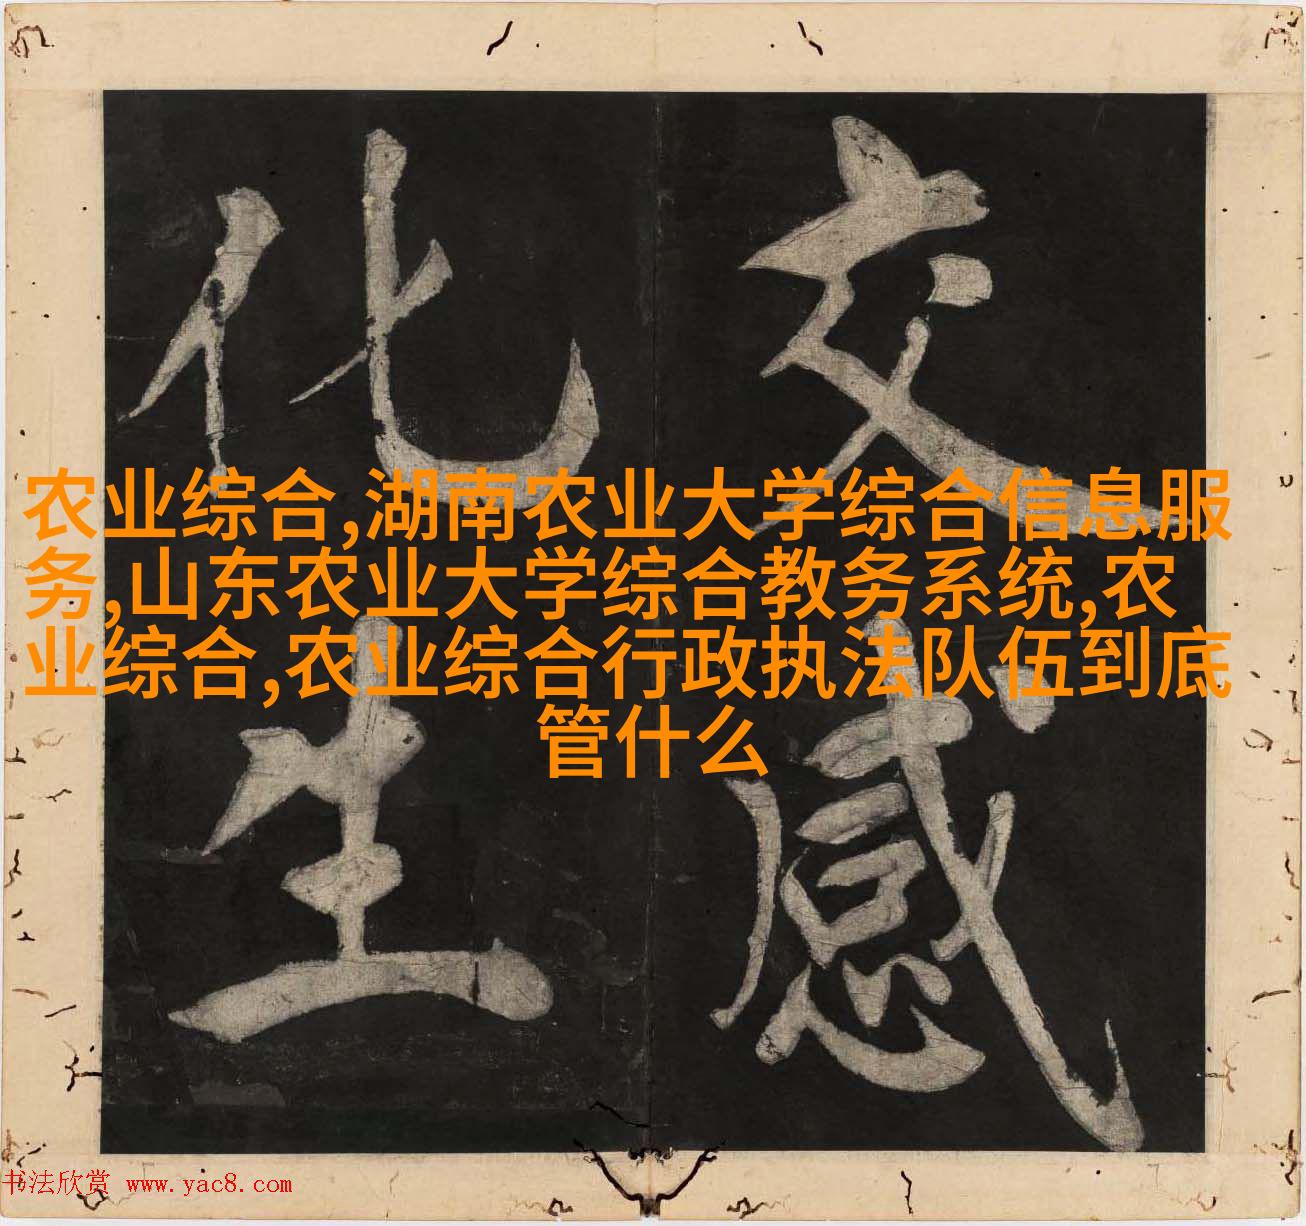 交感
化生
农业综合,湖南农业大学综合信息服
务,山东农业大学综合教务系统,农
业综合,农业综合行政执法队伍到底
管什么
书法欣赏 www.yac8.com